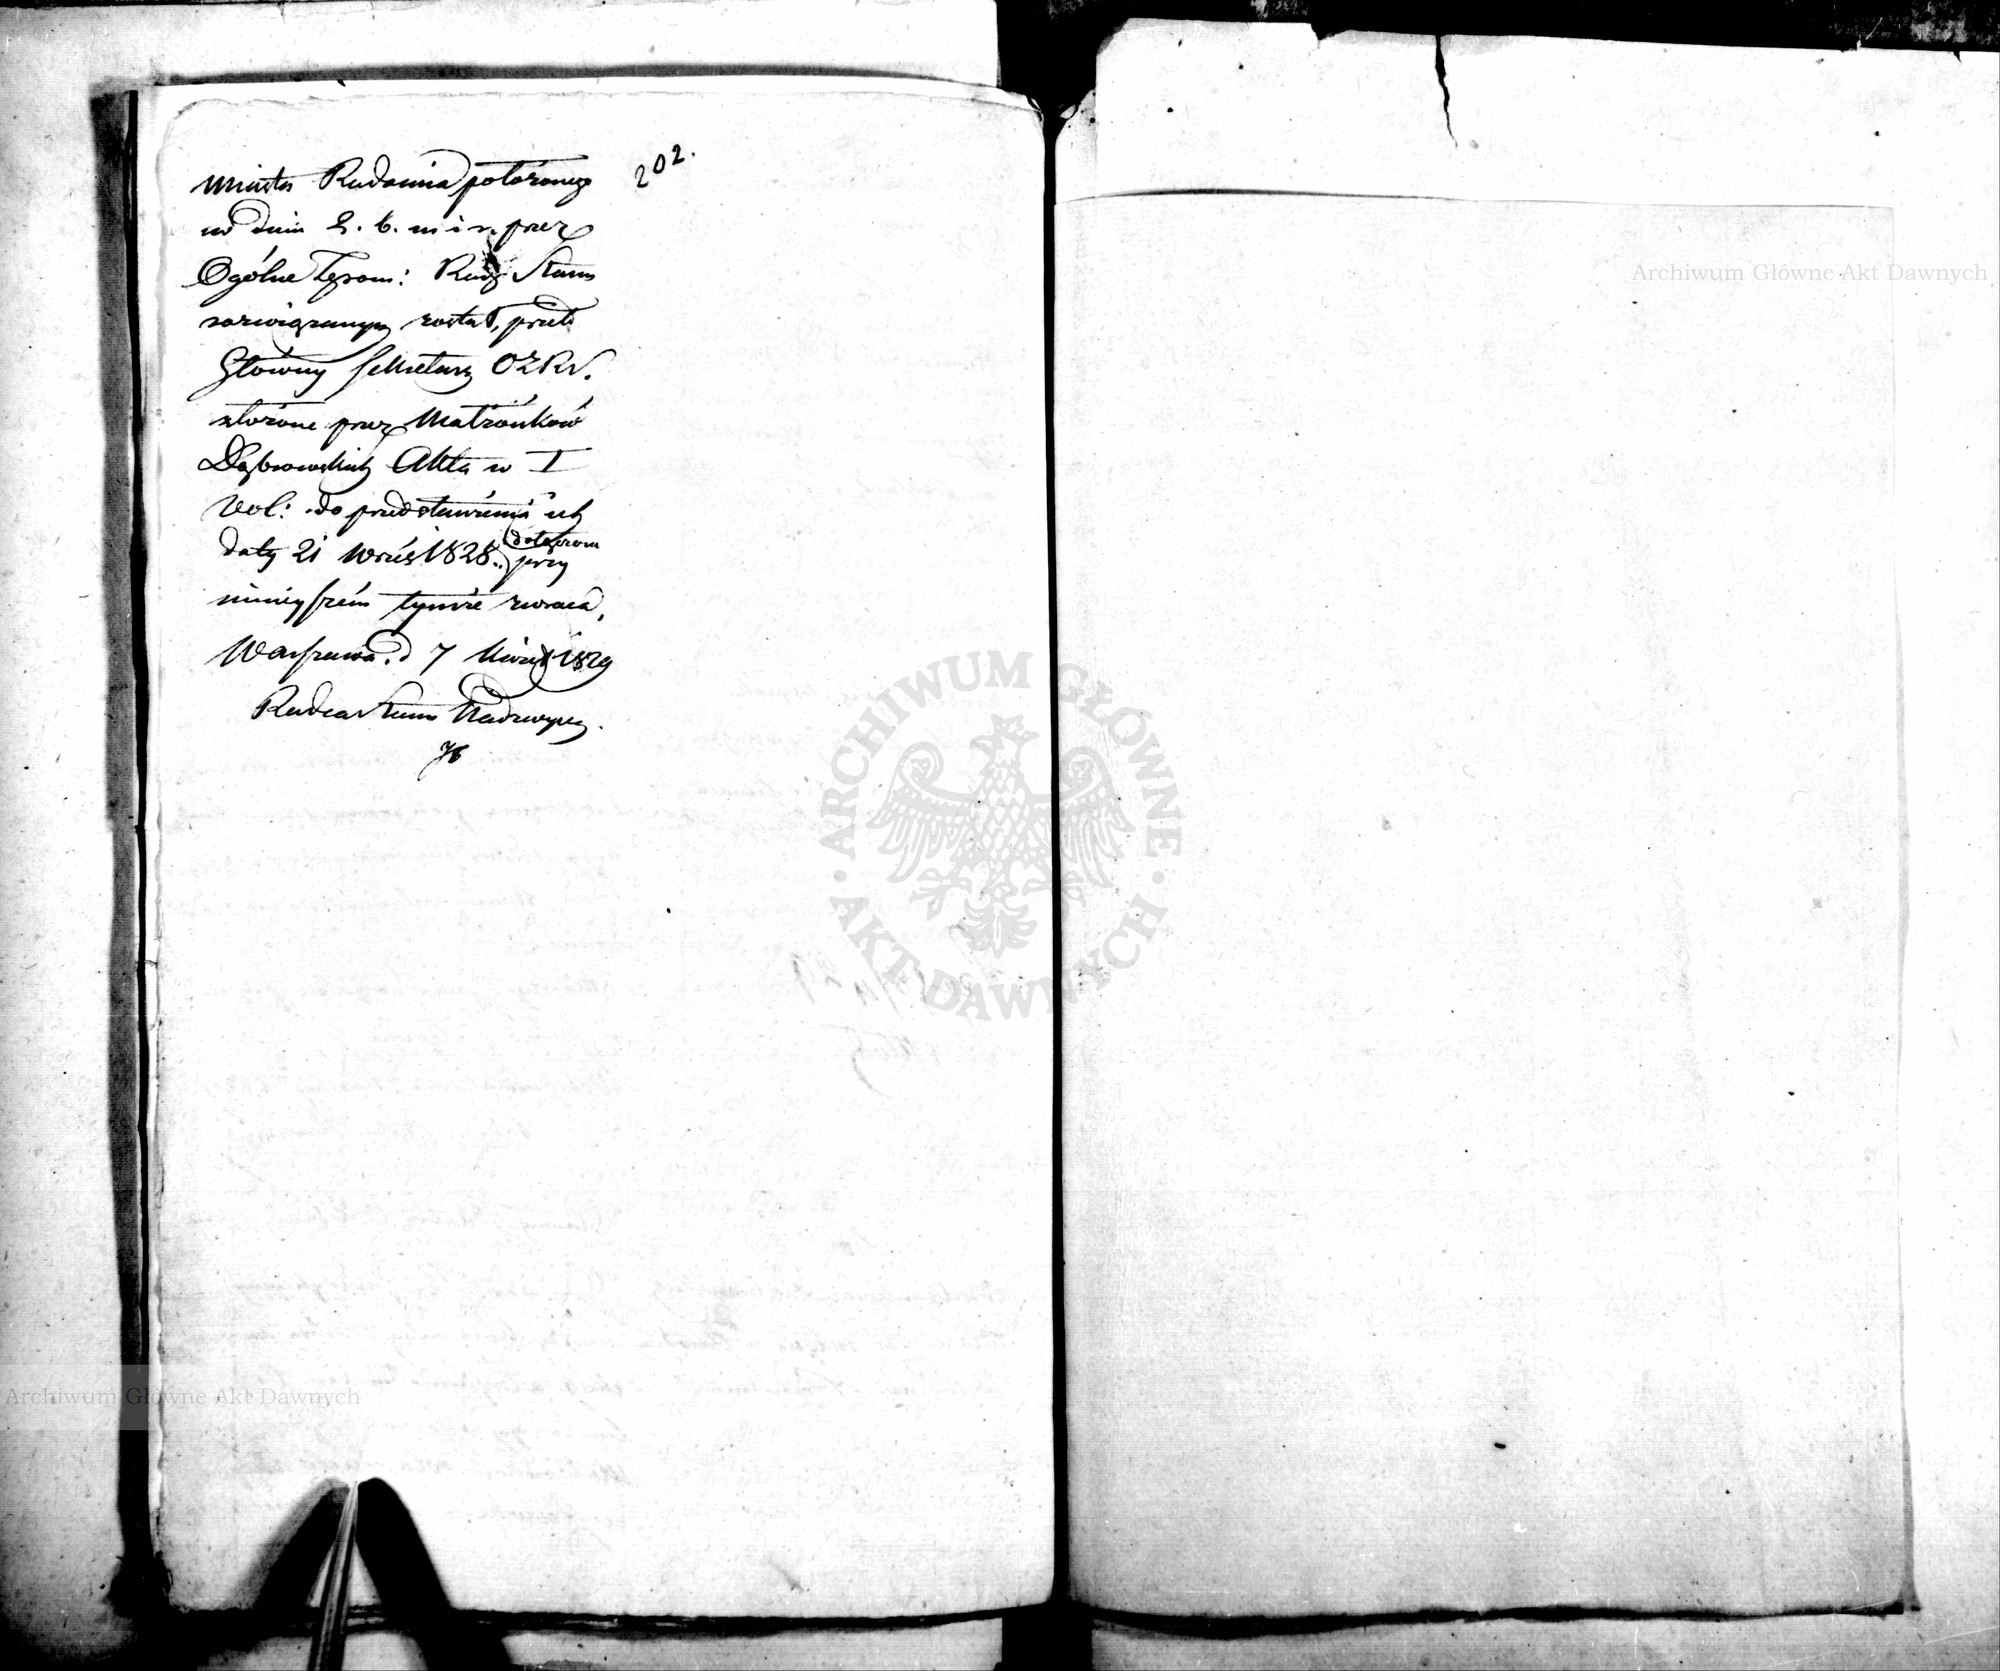 202.
Miasta Radomia położonego
w dniu 2. b. m i r. przez
Ogólne Zgrom: Rady Stanu
rozwiązanym został, przeto
Główny Sekretarz
złożone przez Małżonków
Dąbrowskich Akta w I
Vol: do przedstawienia ich
daty 21 Wrześ 1828. dołączone
przy
niniejszém tymże zwraca,
Warszawa. d 7 1829
Radca Stanu Nadzwycz.
Archiwum Główne Akt Dawnych
Archiwum Główne Akt Dawnych
ARCHIWUM GŁÓWNE
AKT DAWNYCH